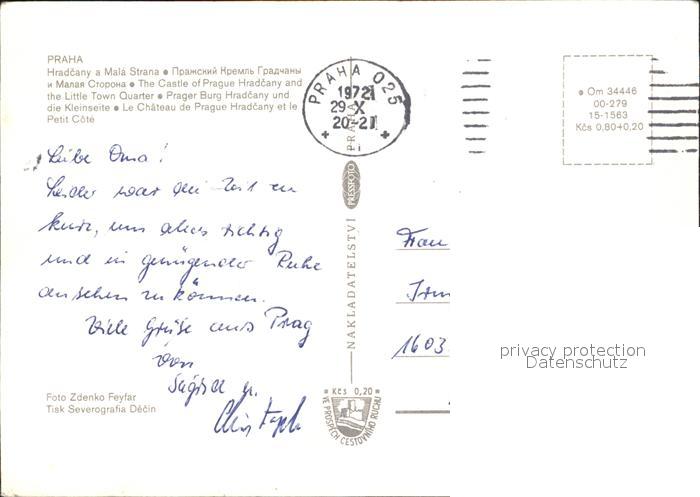 PRAHA
Hradčany a Malá Strana ● Пражский Кремль Градчаны
и Малая Сторона ● The Castle of Prague Hradčany and
the Little Town Quarter ● Prager Burg Hradčany und
die Kleinseite ● Le Château de Prague Hradčany et le
Petit Côté
Liebe Oma!
Leider war die Zeit zu
kurz, um alles richtig
und in genügender Ruhe
ansehen zu können.
Viele Grüße aus Prag
von
u.
Foto Zdenko Feyfar
Tisk Severografia Děčín
PRAHA 025
1972
29 X
20-21
PRAHA
PRESSFOTO
NAKLADATELSTVÍ
Kčs 0,20
VE PROSPĚCH CESTOVNÍHO RUCHU
● Om 34446
00-279
15-1563
Kčs 0,80+0,20
Frau
1603
privacy protection
Datenschutz